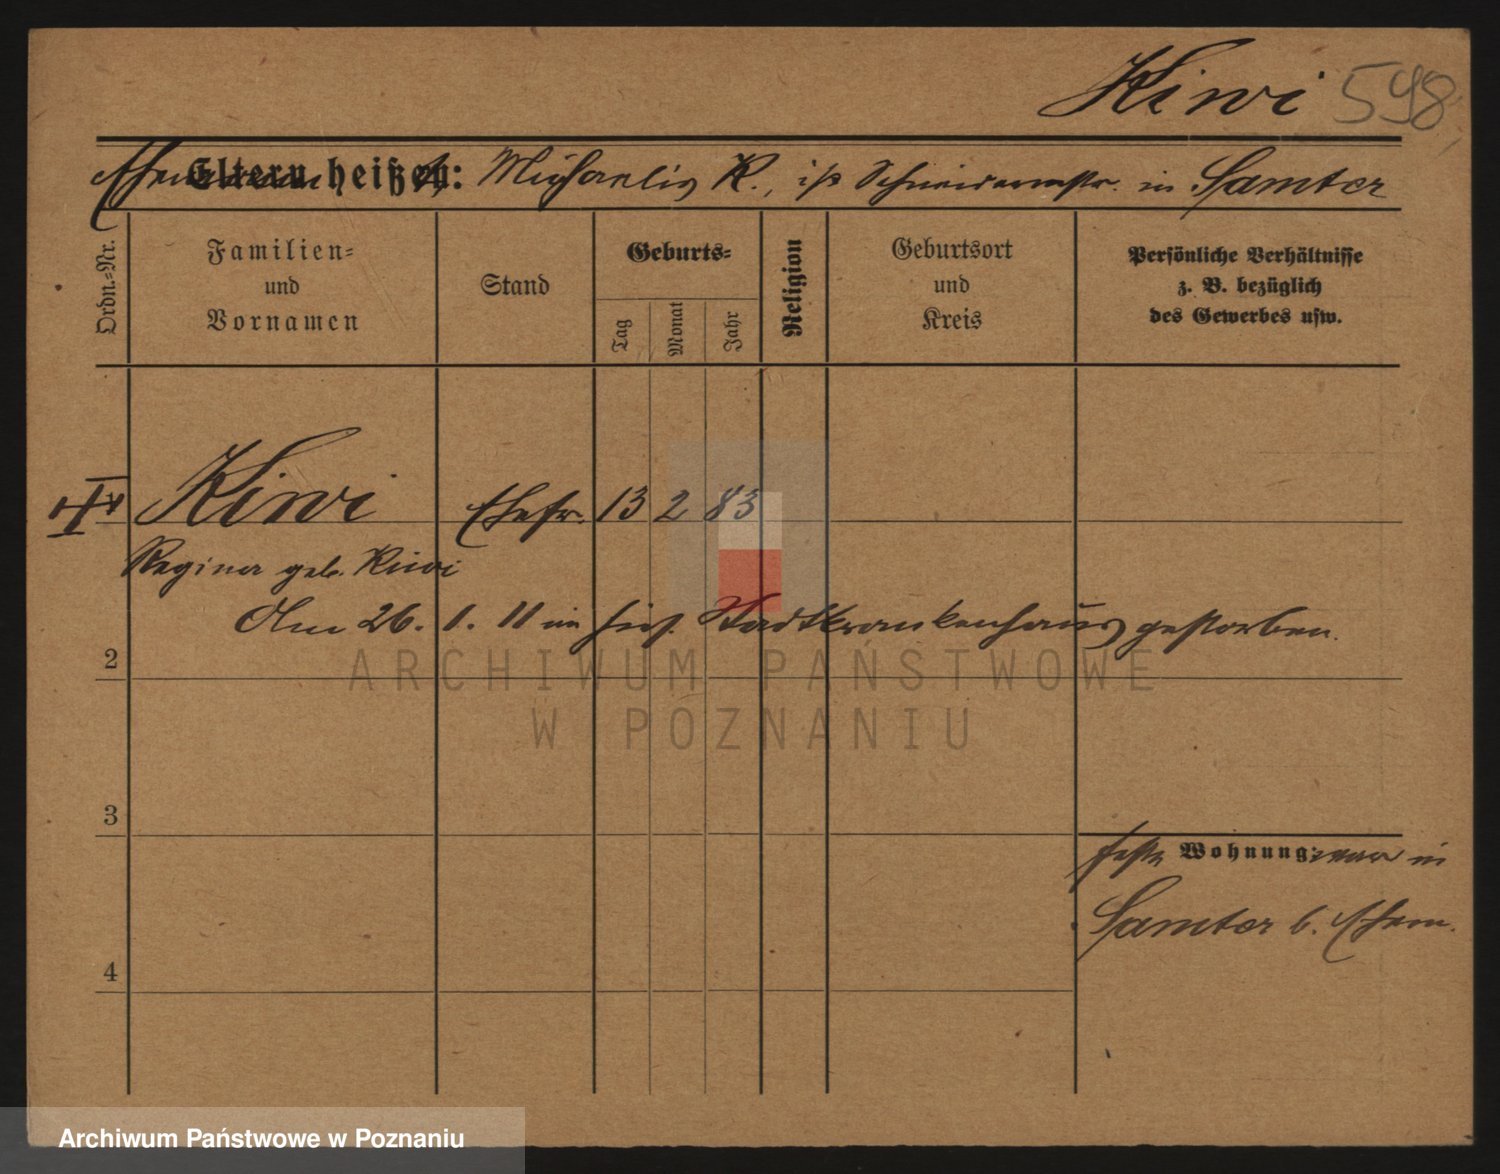 Kiwi 598
Ehemann Eltern heißen: Michaelis K., ist Schneidermstr. in Samter
Ordn.-Nr.
Familien-
und
Vornamen
Stand
Geburts-
Tag
Monat
Jahr
Religion
Geburtsort
und
Kreis
Persönliche Verhältnisse
z. B. bezüglich
des Gewerbes usw.
Kiwi Ehefr. 13 2 83
Regina geb. Kiwi
Am 26. 1. 11 im hies. Stadtkrankenhaus gestorben.
2
ARCHIWUM PAŃSTWOWE
W POZNANIU
3
feste Wohnung: war in
Samter b. Ehem.
4
Archiwum Państwowe w Poznaniu